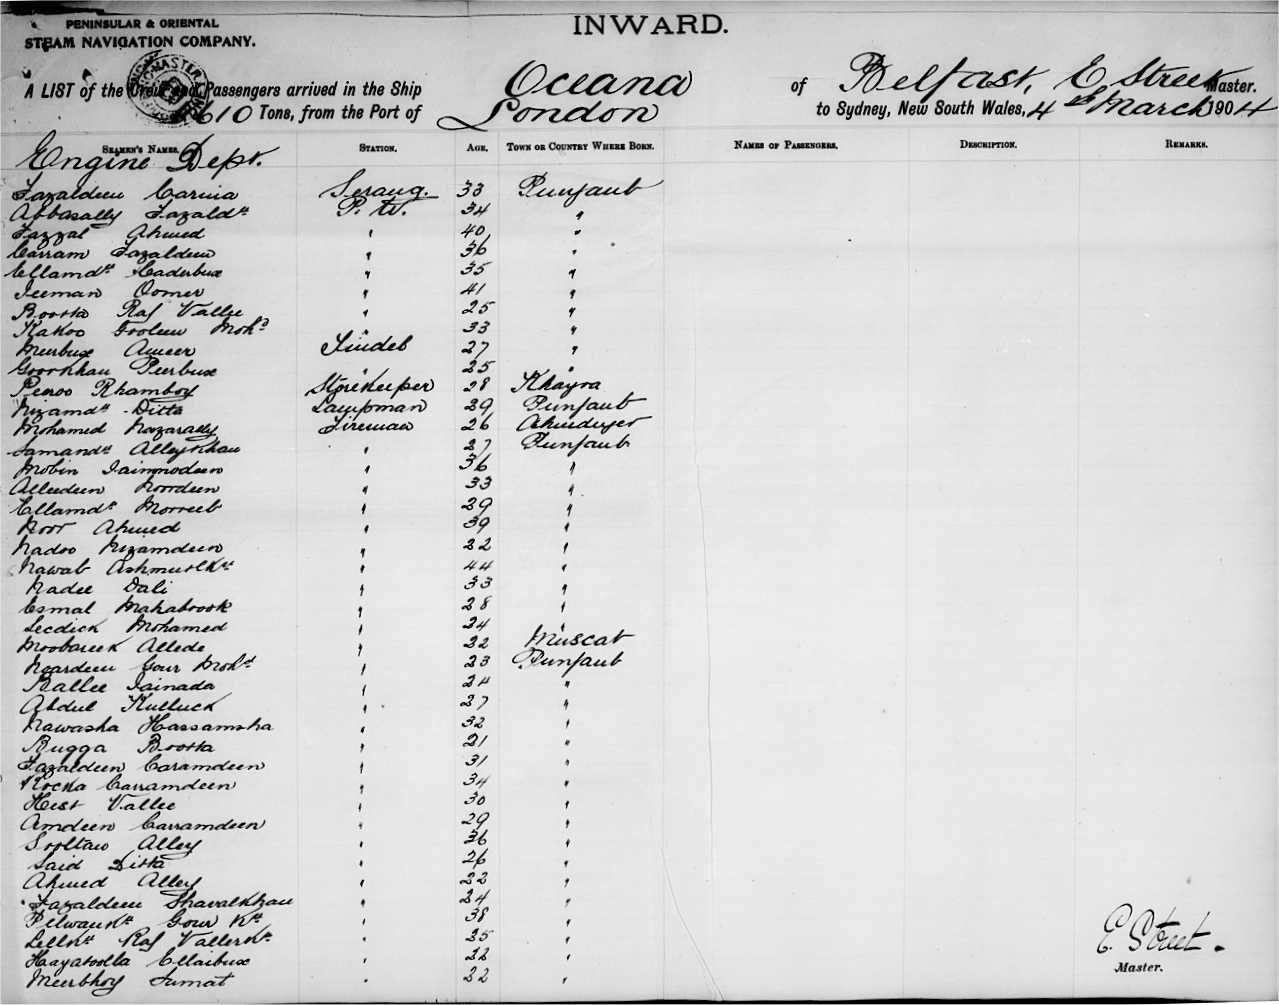 PENINSULAR & ORIENTAL
STEAM NAVIGATION COMPANY.
INWARD.
A LIST of the Crew and Passengers arrived in the Ship Oceana of Belfast, E Street Master.
610 Tons, from the Port of London to Sydney, New South Wales, 4th March 1904
SEAMEN'S NAMES. STATION. AGE. TOWN OR COUNTRY WHERE BORN. NAMES OF PASSENGERS. DESCRIPTION. REMARKS.
Engine Dept.
Fazaldeen Carima Serang. 33 Punjaub
Abbasally Fazaldn P. W. 34 "
Fazzal Ahmed " 40 "
Carram Fazaldeen " 36 "
Ellamdn Kaderbux " 35 "
Jeeman Oomer " 41 "
Boosta Raj Vallee " 25 "
Kakoo Goolem Mohd " 33 "
Meerbux Ameer Tindel 27 "
Goorkhan Peerbux " 25 "
Peeroo Rhamboy Storekeeper 28 Khayra
Nizamdn Ditta Lampman 29 Punjaub
Mohamed Nazarally Fireman 26
Samandn Alleykhan " 27 Punjaub
Mobin Jaimnodeen " 36 "
Alleedeen Noordeen " 33 "
Ellamdn Morreeb " 29 "
Noor Ahmed " 39 "
Nadoo Nizamdeen " 22 "
Nawab " 44 "
Nadee Dali " 33 "
Esmal Mahabrook " 28 "
Secdick Mohamed " 24 "
Moobareek Allede " 22 Muscat
Neardeen Gour Mohd " 23 Punjaub
Rallee Jainada " 24 "
Abdul Kulluck " 27 "
Nawasha Hassamsha " 32 "
Bugga Boosta " 21 "
Fazaldeen Caramdeen " 31 "
Rocka Carramdeen " 34 "
Hest Vallee " 30 "
Amdeen Carramdeen " 29 "
Sooltan Alley " 36 "
Said Ditta " 26 "
Ahmed Alley " 22 "
Fazaldeen Shavalkhan " 24 "
Pilwankn Gour Kn " 38 "
Lellkn Raj Vallerkn " 25 "
Hayatoolla Ellaibux " 22 "
Meerbhoy Jumat " 22 "
E. Street.
Master.